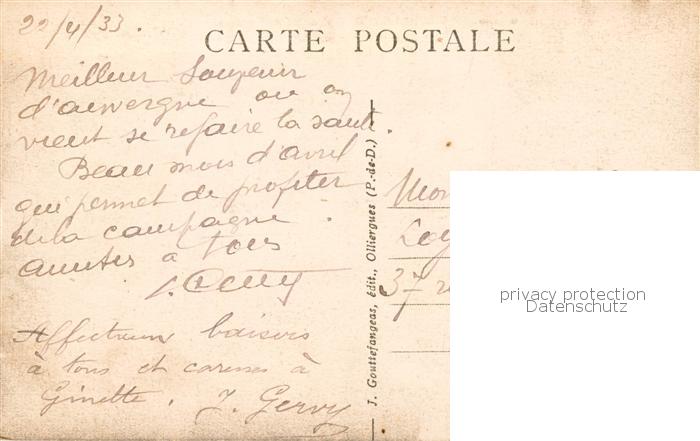 22/4/33.
CARTE POSTALE
Meilleur Souvenir
d'auvergne ou on
vient se refaire la santé.
Beau mois d'avril
qui permet de profiter
de la campagne.
Amitiés à tous
Affectueux baisers
à tous et caresses à
Ginette. J. Gervy
J. Gouttefangeas, édit., Olliergues (P.-de-D.)
Mon
37 r
privacy protection
Datenschutz